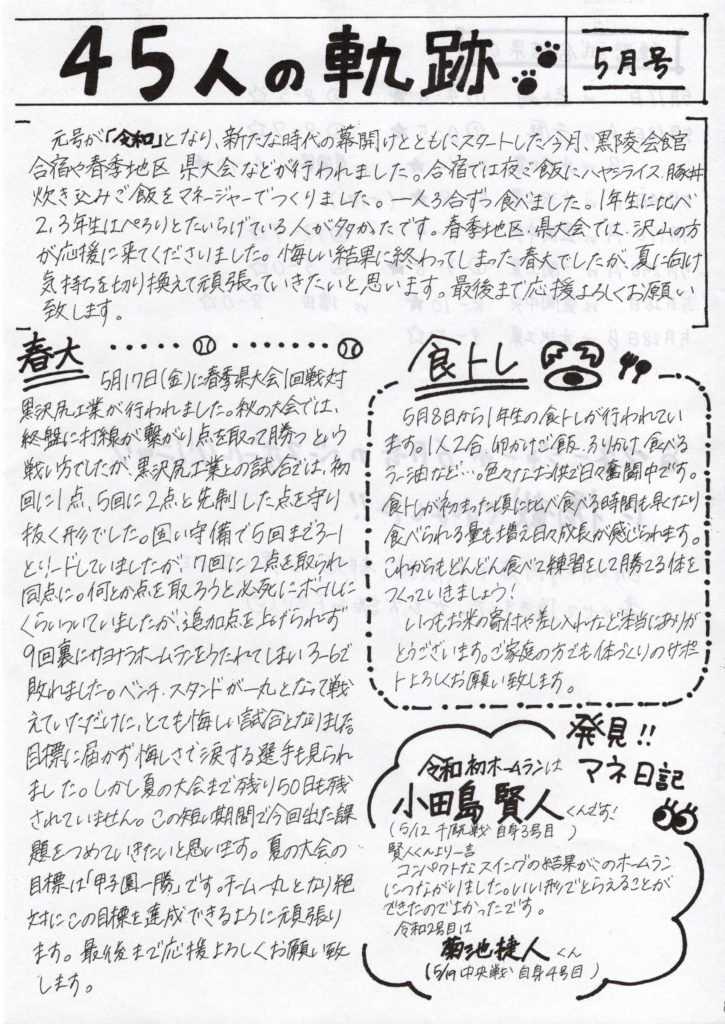 45人の軌跡
5月号
元号が「令和」となり、新たな時代の幕開けとともにスタートした今月、黒陵会館
合宿や春季地区 県大会などが行われました。合宿では夜ご飯にハヤシライス、豚丼
炊き込みご飯をマネージャーでつくりました。一人3合ずつ食べました。1年生に比べ
2,3年生はぺろりとたいらげている人が多かったです。春季地区・県大会では、沢山の方
が応援に来てくださいました。悔しい結果に終わってしまった春大でしたが、夏に向け
気持ちを切り換えて頑張っていきたいと思います。最後まで応援よろしくお願い
致します。
春大
5月17日(金)に春季県大会1回戦対
黒沢尻工業が行われました。秋の大会では、
終盤に打線が繋がり点を取って勝つ という
戦い方でしたが、黒沢尻工業との試合では、初
回に1点、5回に2点と先制した点を守り
抜く形でした。固い守備で5回まで3-1
とリードしていましたが、7回に2点を取られ
同点に。何とか点を取ろうと必死にボールに
くらいついていましたが、追加点を上げられず
9回裏にサヨナラホームランをうたれてしまい3-6で
敗れました。ベンチ・スタンドが一丸となって戦
えていただけに、とても悔しい試合となりました。
目標に届かず悔しさで涙する選手も見られ
ました。しかし夏の大会まで残り50日も残
されていません。この短い期間で今回出た課
題をつめていきたいと思います。夏の大会の
目標は「甲子園一勝」です。チーム一丸となり絶
対にこの目標を達成できるように頑張り
ます。最後まで応援よろしくお願い致
します。
食トレ
5月8日から1年生の食トレが行われてい
ます。1人2合、卵かけご飯、ふりかけ、食べる
ラー油など…。色々なお供で日々奮闘中です。
食トレが初まった頃に比べ食べる時間も早くなり
食べられる量も増え日々成長が感じられます。
これからもどんどん食べて練習をして勝てる体を
つくっていきましょう!
いつもお米の寄付や差し入れなど本当にありが
とうございます。ご家庭の方でも体づくりのサポー
トよろしくお願い致します。
発見!!
マネ日記
令和初ホームランは
小田島 賢人くんです!
(5/12 千厩戦 自身3号目)
賢人くんより一言
コンパクトなスイングの結果がこのホームラン
につながりました。いい形でとらえることが
できたのでよかったです。
令和2号目は
菊池捷人くん
(5/19 中央戦 自身4号目)